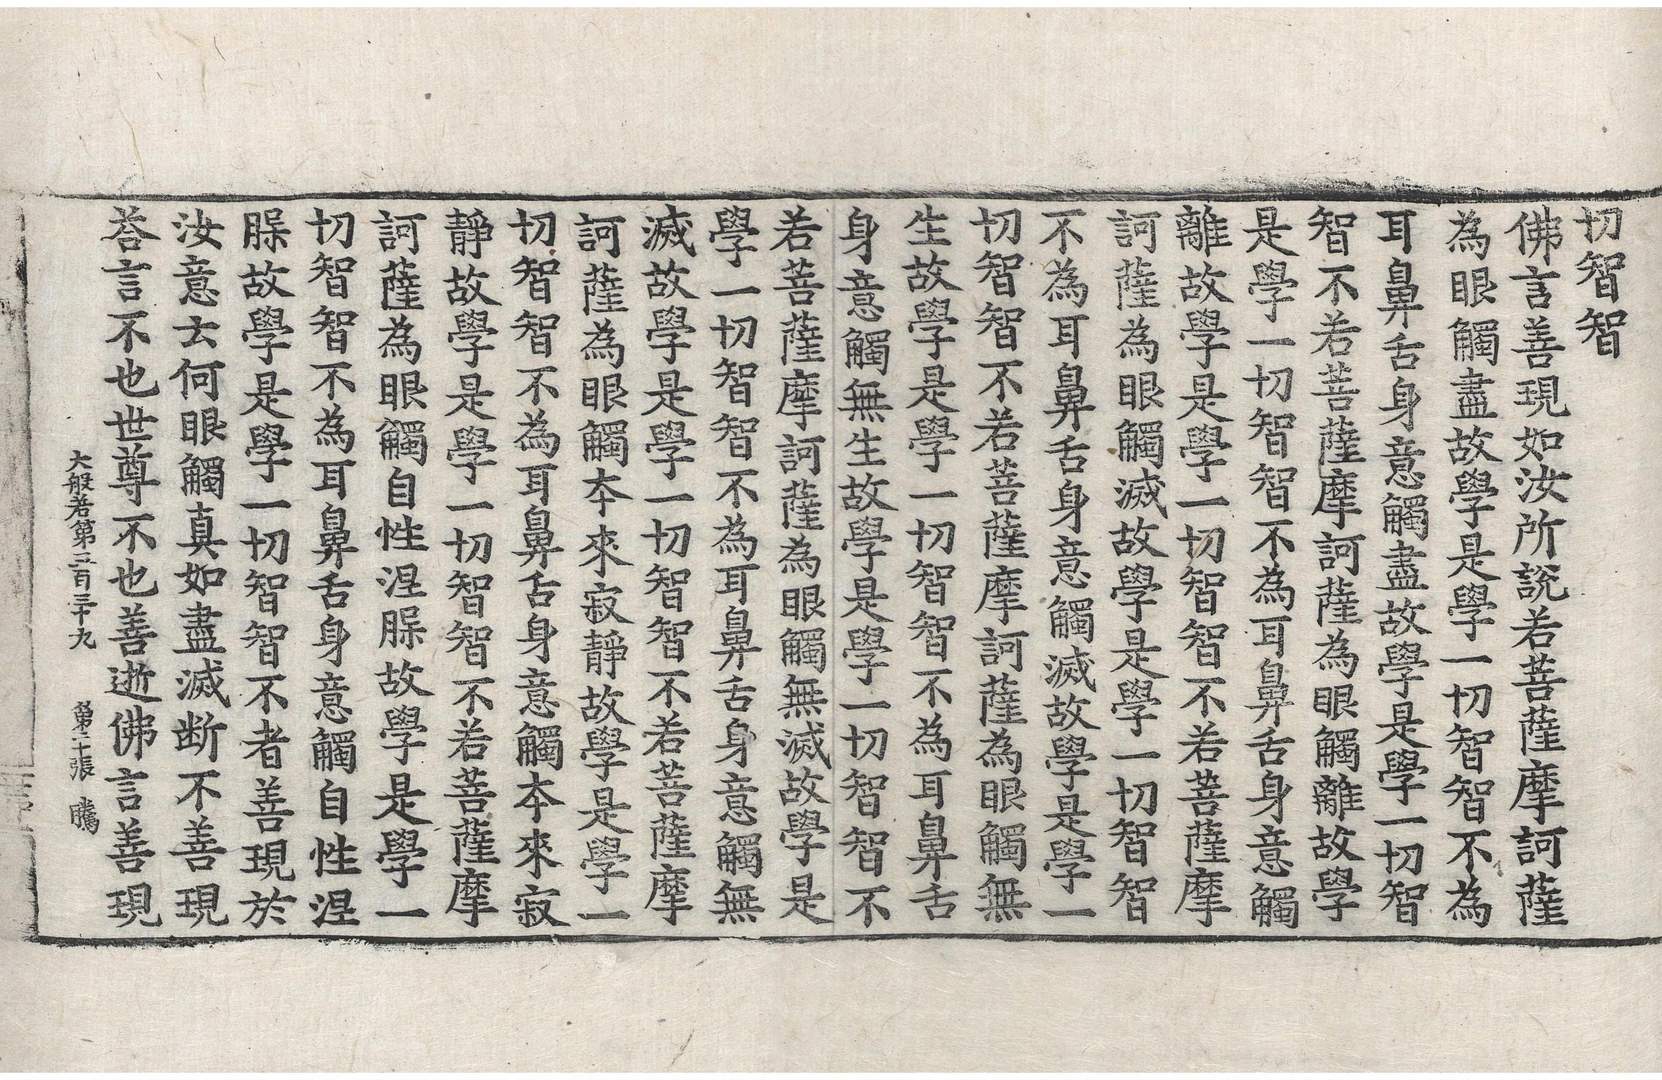 切智智
佛言善現如汝所說若菩薩摩訶薩
為眼觸盡故學是學一切智智不為
耳鼻舌身意觸盡故學是學一切智
智不若菩薩摩訶薩為眼觸離故學
是學一切智智不為耳鼻舌身意觸
離故學是學一切智智不若菩薩摩
訶薩為眼觸滅故學是學一切智智
不為耳鼻舌身意觸滅故學是學一
切智智不若菩薩摩訶薩為眼觸無
生故學是學一切智智不為耳鼻舌
身意觸無生故學是學一切智智不
若菩薩摩訶薩為眼觸無滅故學是
學一切智智不為耳鼻舌身意觸無
滅故學是學一切智智不若菩薩摩
訶薩為眼觸夲來寂靜故學是學一
切智智不為耳鼻舌身意觸夲來寂
靜故學是學一切智智不若菩薩摩
訶薩為眼觸自性涅槃故學是學一
切智智不為耳鼻舌身意觸自性涅
槃故學是學一切智智不者善現於
汝意云何眼觸真如盡滅断不善現
荅言不也世尊不也善逝佛言善現
大般若第三百三十九 第二十張 騰